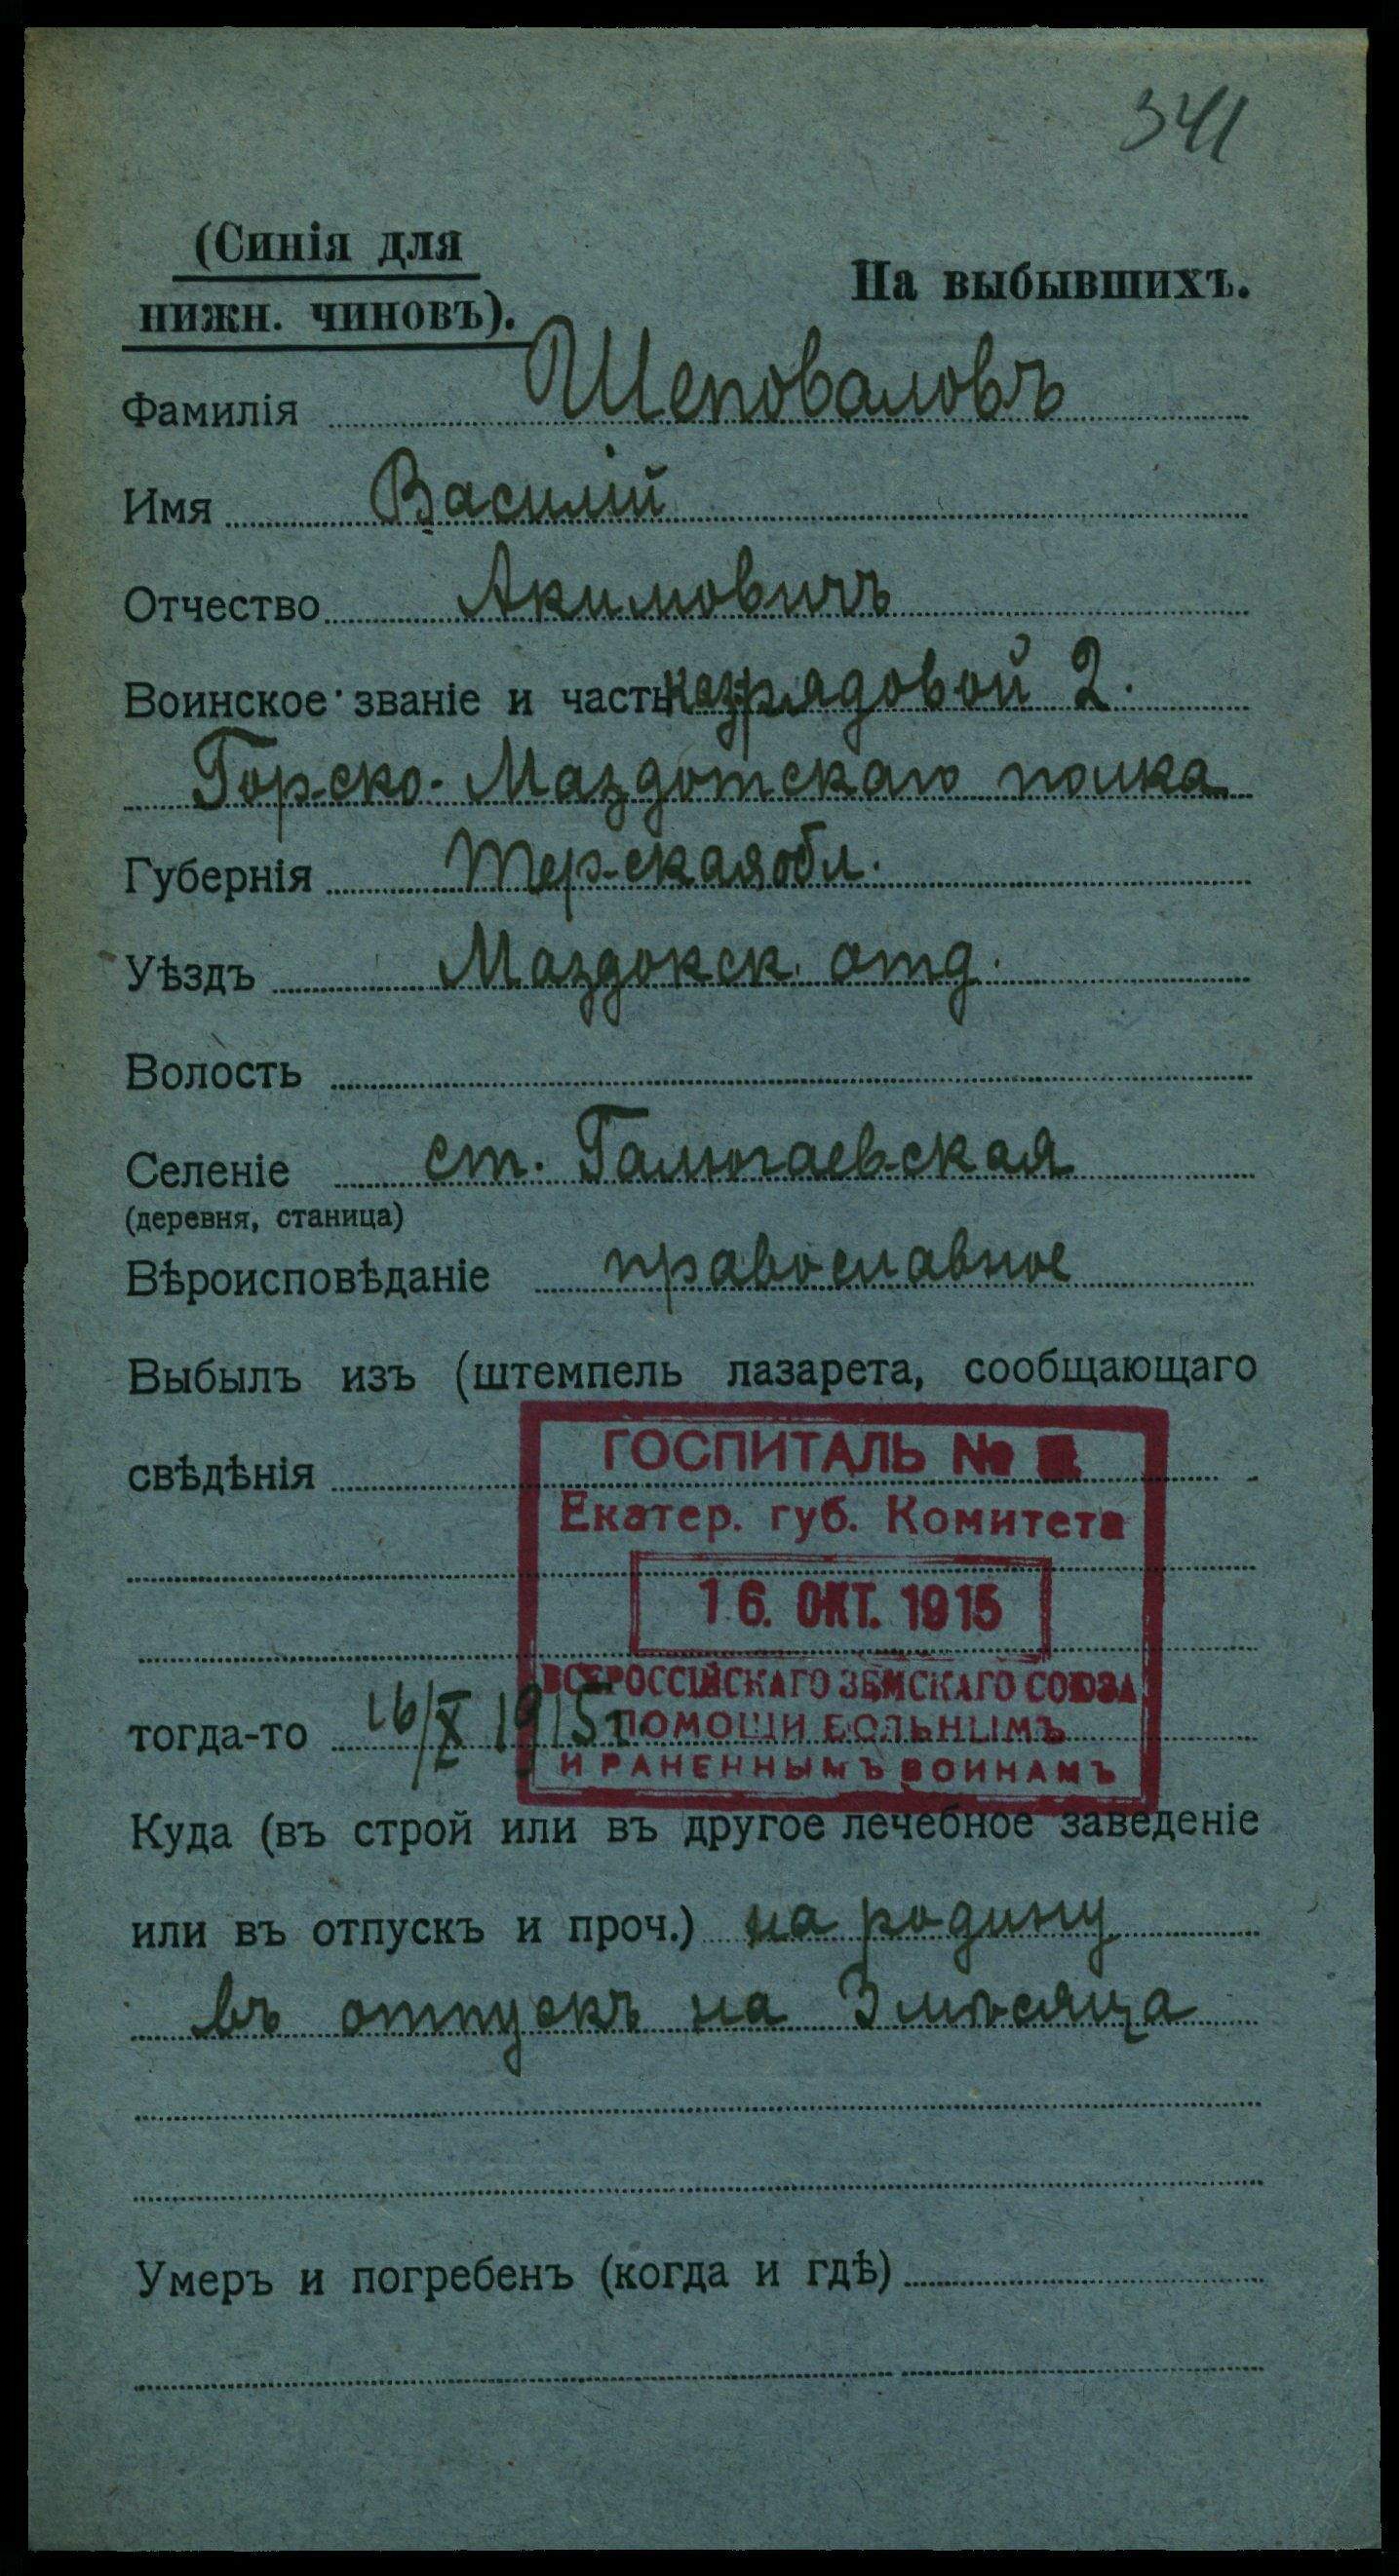 341
(Синія для
нижн. чиновъ).
На выбывшихъ.
Фамилія Шеповаловъ
Имя Василій
Отчество Акимовичъ
Воинское званіе и часть рядовой 2.
Горско-Маздотскаго полка
Губернія Терская обл.
Уѣздъ Маздокск. отд.
Волость
Селеніе ст. Галюгаевская
(деревня, станица)
Вѣроисповѣданіе православное
Выбылъ изъ (штемпель лазарета, сообщающаго
свѣдѣнія
ГОСПИТАЛЬ №
Екатер. губ. Комитета
16. ОКТ. 1915
ВСЕРОССІЙСКАГО ЗЕМСКАГО СОЮЗА
ПОМОЩИ БОЛЬНЫМЪ
И РАНЕННЫМЪ ВОИНАМЪ
тогда-то 16/X 1915 г
Куда (въ строй или въ другое лечебное заведеніе
или въ отпускъ и проч.) на родину
въ отпускъ на 3 мѣсяца
Умеръ и погребенъ (когда и гдѣ)